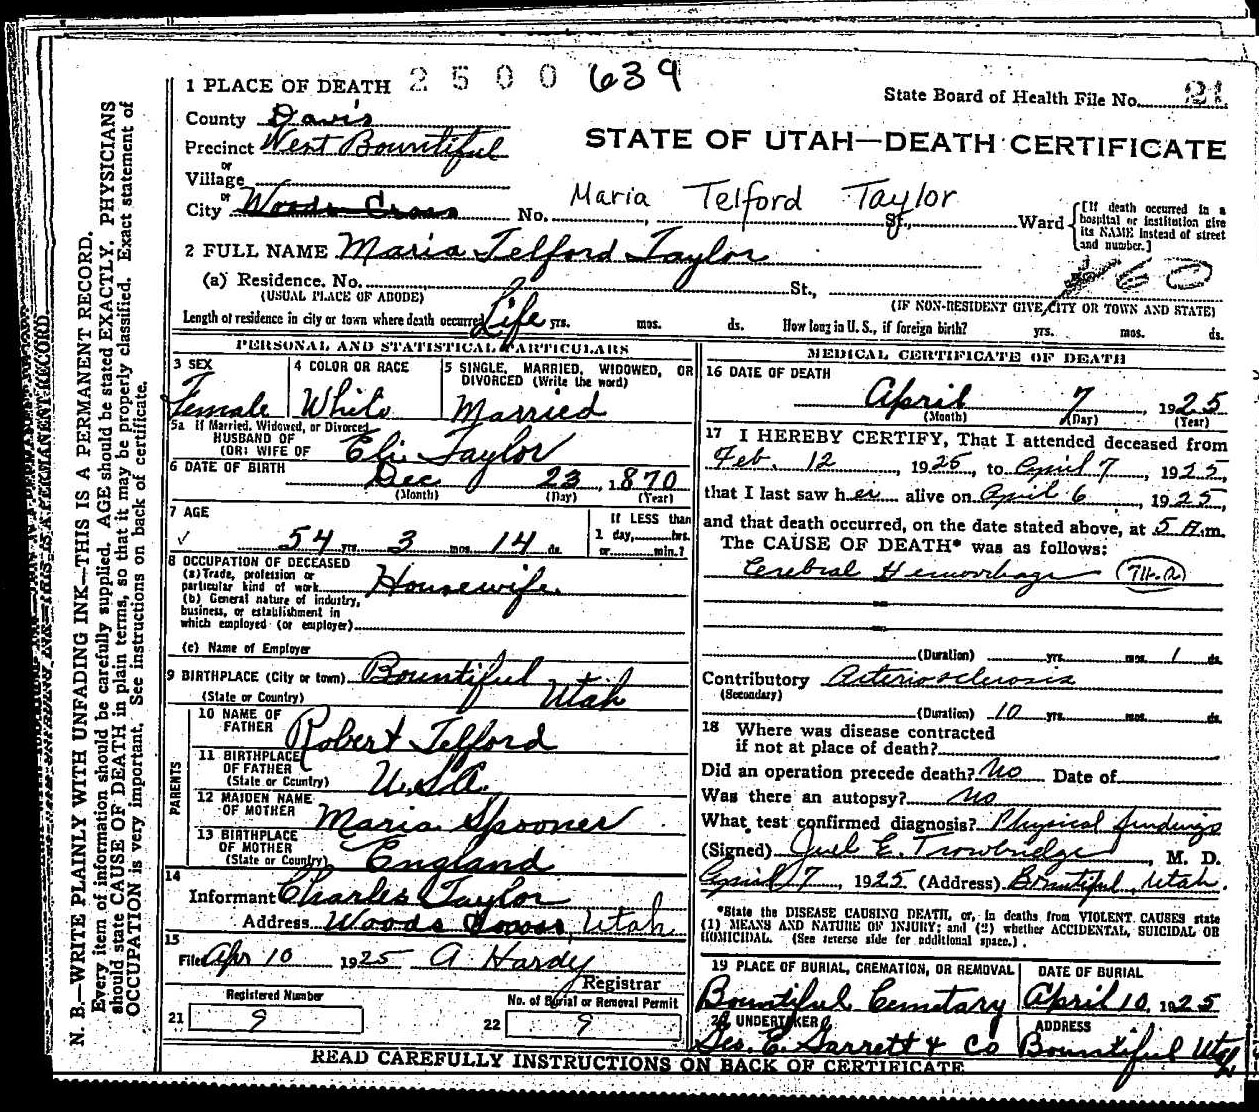 1 PLACE OF DEATH 2500 639
State Board of Health File No. 21
County Davis
STATE OF UTAH—DEATH CERTIFICATE
Precinct West Bountiful
or
Village
or
City Woods Cross No. St., Ward
Maria Telford Taylor
[If death occurred in a
hospital or institution give
its NAME instead of street
and number.]
2 FULL NAME Maria Telford Taylor
460
(a) Residence. No. St.,
(USUAL PLACE OF ABODE) (IF NON-RESIDENT GIVE CITY OR TOWN AND STATE)
Length of residence in city or town where death occurred Life yrs. mos. ds. How long in U. S., if foreign birth? yrs. mos. ds.
PERSONAL AND STATISTICAL PARTICULARS
3 SEX
Female
4 COLOR OR RACE
White
5 SINGLE, MARRIED, WIDOWED, OR
DIVORCED (Write the word)
Married
5a If Married, Widowed, or Divorced
HUSBAND OF
(OR) WIFE OF Eli Taylor
6 DATE OF BIRTH Dec 23, 1870
(Month) (Day) (Year)
7 AGE
54 yrs. 3 mos. 14 ds.
If LESS than
1 day, hrs.
or min.?
8 OCCUPATION OF DECEASED
(a) Trade, profession or
particular kind of work Housewife
(b) General nature of industry,
business, or establishment in
which employed (or employer)
(c) Name of Employer
9 BIRTHPLACE (City or town) Bountiful
(State or Country) Utah
PARENTS
10 NAME OF
FATHER Robert Telford
11 BIRTHPLACE
OF FATHER
(State or Country) U.S.A.
12 MAIDEN NAME
OF MOTHER Maria Spooner
13 BIRTHPLACE
OF MOTHER
(State or Country) England
14
Informant Charles Taylor
Address Woods Cross, Utah
15
Filed Apr 10 1925 A Hardy
Registrar
Registered Number
21 9
No. of Burial or Removal Permit
22 9
MEDICAL CERTIFICATE OF DEATH
16 DATE OF DEATH
April 7, 1925
(Month) (Day) (Year)
17 I HEREBY CERTIFY, That I attended deceased from
Feb. 12, 1925, to April 7 1925,
that I last saw her alive on April 6 1925,
and that death occurred, on the date stated above, at 5 A.m.
The CAUSE OF DEATH* was as follows:
Cerebral Hemorrhage
(Duration) yrs. mos. 1 ds.
Contributory Arteriosclerosis
(Secondary)
(Duration) 10 yrs. mos. ds.
18 Where was disease contracted
if not at place of death?
Did an operation precede death? No Date of
Was there an autopsy? No
What test confirmed diagnosis? Physical findings
(Signed) Juel E. Trowbridge, M. D.
April 7, 1925 (Address) Bountiful, Utah.
*State the DISEASE CAUSING DEATH, or, in deaths from VIOLENT CAUSES state
(1) MEANS AND NATURE OF INJURY; and (2) whether ACCIDENTAL, SUICIDAL OR
HOMICIDAL. (See reverse side for additional space.)
19 PLACE OF BURIAL, CREMATION, OR REMOVAL
Bountiful Cemetary
DATE OF BURIAL
April 10, 1925
20 UNDERTAKER
Geo. E. Garrett & Co
ADDRESS
Bountiful Utah
READ CAREFULLY INSTRUCTIONS ON BACK OF CERTIFICATE
N. B.—WRITE PLAINLY WITH UNFADING INK—THIS IS A PERMANENT RECORD.
Every item of information should be carefully supplied. AGE should be stated EXACTLY. PHYSICIANS
should state CAUSE OF DEATH in plain terms, so that it may be properly classified. Exact statement of
OCCUPATION is very important. See instructions on back of certificate.